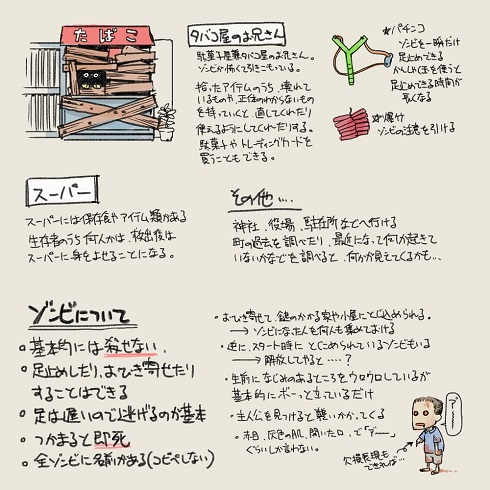 たばこ
タバコ屋のお兄さん
駄菓子屋兼タバコ屋のお兄さん。
ゾンビが怖くて引きこもっている。
拾ったアイテムのうち、壊れて
いるものや、正体のわからないもの
を持っていくと、直してくれたり
使えるようにしてくれたりする。
駄菓子やトレーディングカードを
買うこともできる。
☆パチンコ
ゾンビを一瞬だけ
足止めできる
かんしゃく玉を使うと
足止めできる時間が
長くなる
☆爆竹
ゾンビの注意を引ける
スーパー
スーパーには保存食やアイテム類がある
生存者のうち何人かは、救出後は
スーパーに身をよせることになる。
その他….
神社、役場、駐在所などへ行ける
町の過去を調べたり、最近になって何が起きて
いないかなどを調べると、何かが見えてくるかも…
ゾンビについて
・基本的には殺せない.
・足止めしたり、おびき寄せたり
することはできる
・足は遅いので逃げるのが基本
・つかまると即死
・全ゾンビに名前がある(コピペしない)
・おびき寄せて、鍵のかかる家や小屋にとじ込められる。
→ ゾンビになった人を何人も集めておける
・逆に、スタート時にとじこめられているゾンビもいる
→ 解放してやると‥‥?
・生前になじみのあるところをウロウロしているが
基本的にボーッと立っているだけ
・主人公を見つけると襲いかかってくる
・灰色の肌、開いた口、で「ア"ーー」
ぐらいしか言わない。
欠損表現も
できれば…